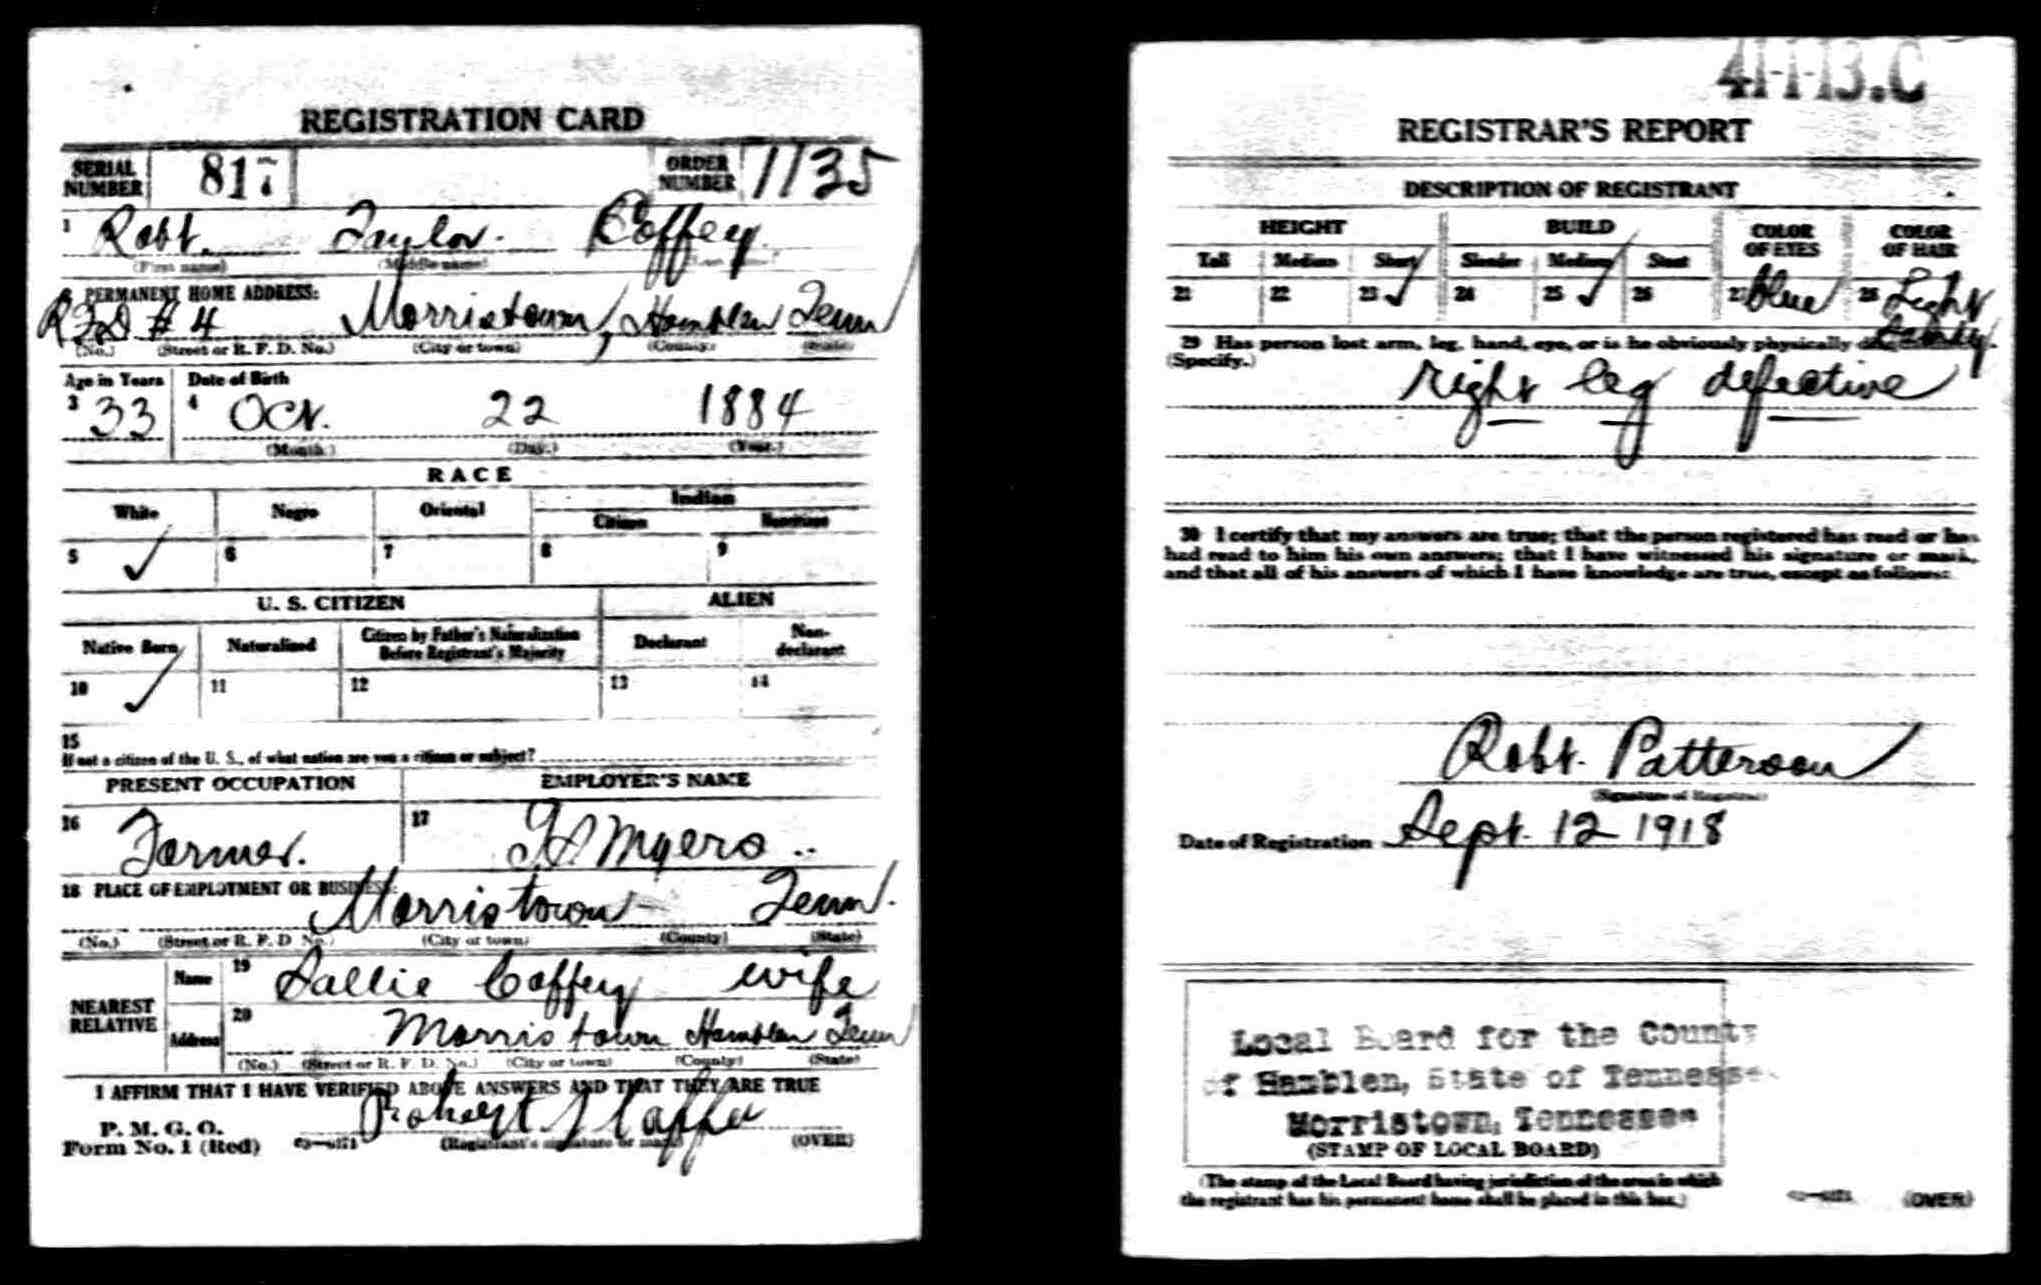 REGISTRATION CARD
SERIAL NUMBER 817 ORDER NUMBER 1135
1 Robt. Taylor. Coffey
(First name) (Middle name) (Last name)
PERMANENT HOME ADDRESS:
RFD # 4 Morristown, Hamblen Tenn
(No.) (Street or R. F. D. No.) (City or town) (County) (State)
Age in Years Date of Birth
3 33 4 Oct. 22 1884
(Month) (Day) (Year)
RACE
White Negro Oriental Indian
Citizen Noncitizen
5 ✓ 6 7 8 9
U. S. CITIZEN ALIEN
Native Born Naturalized Citizen by Father's Naturalization Before Registrant's Majority Declarant Non-declarant
10 ✓ 11 12 13 14
15
If not a citizen of the U. S., of what nation are you a citizen or subject?
PRESENT OCCUPATION EMPLOYER'S NAME
16 Farmer. 17 Myers
18 PLACE OF EMPLOYMENT OR BUSINESS:
Morristown Tenn.
(No.) (Street or R. F. D. No.) (City or town) (County) (State)
NEAREST RELATIVE
Name 19 Sallie Coffey wife
Address 20 Morristown Hamblen Tenn
(No.) (Street or R. F. D. No.) (City or town) (County) (State)
I AFFIRM THAT I HAVE VERIFIED ABOVE ANSWERS AND THAT THEY ARE TRUE
P. M. G. O.
Form No. 1 (Red) Robert
(Registrant's signature or mark) (OVER)
41-1-13.C
REGISTRAR'S REPORT
DESCRIPTION OF REGISTRANT
HEIGHT BUILD COLOR OF EYES COLOR OF HAIR
Tall Medium Short Slender Medium Stout
21 22 23 ✓ 24 25 ✓ 26 27 blue 28 Light
Sandy.
29 Has person lost arm, leg, hand, eye, or is he obviously physically
(Specify.) right leg defective
30 I certify that my answers are true; that the person registered has read or has
had read to him his own answers; that I have witnessed his signature or mark,
and that all of his answers of which I have knowledge are true, except as follows:
Robt. Patterson
(Signature of Registrar)
Date of Registration Sept. 12 1918
Local Board for the County
of Hamblen, State of Tennessee
Morristown, Tennessee
(STAMP OF LOCAL BOARD)
(The stamp of the Local Board having jurisdiction of the area in which
the registrant has his permanent home shall be placed in this box.)
(OVER)